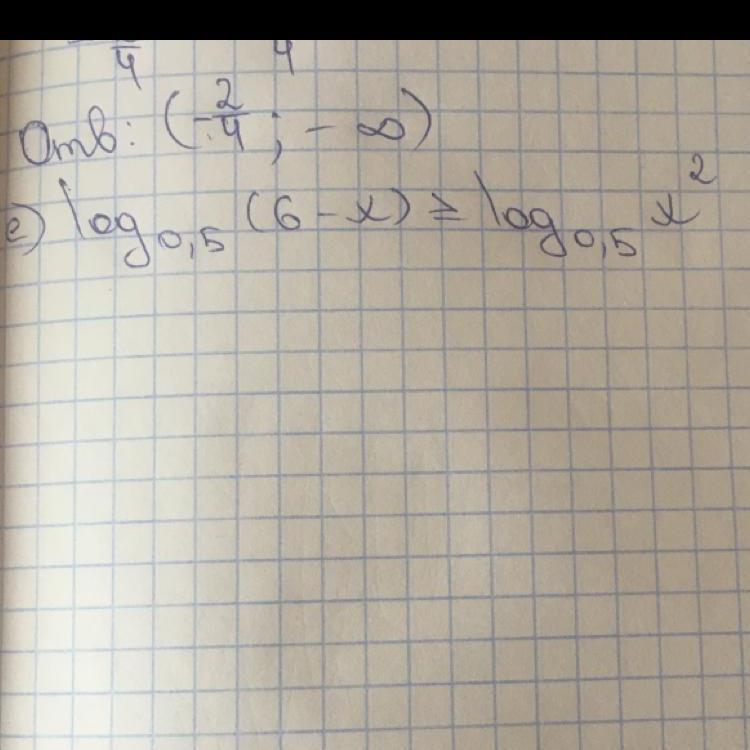 4 4
Отв: (-2/4; -∞)
е) log₀,₅(6-x) ≥ log₀,₅x²